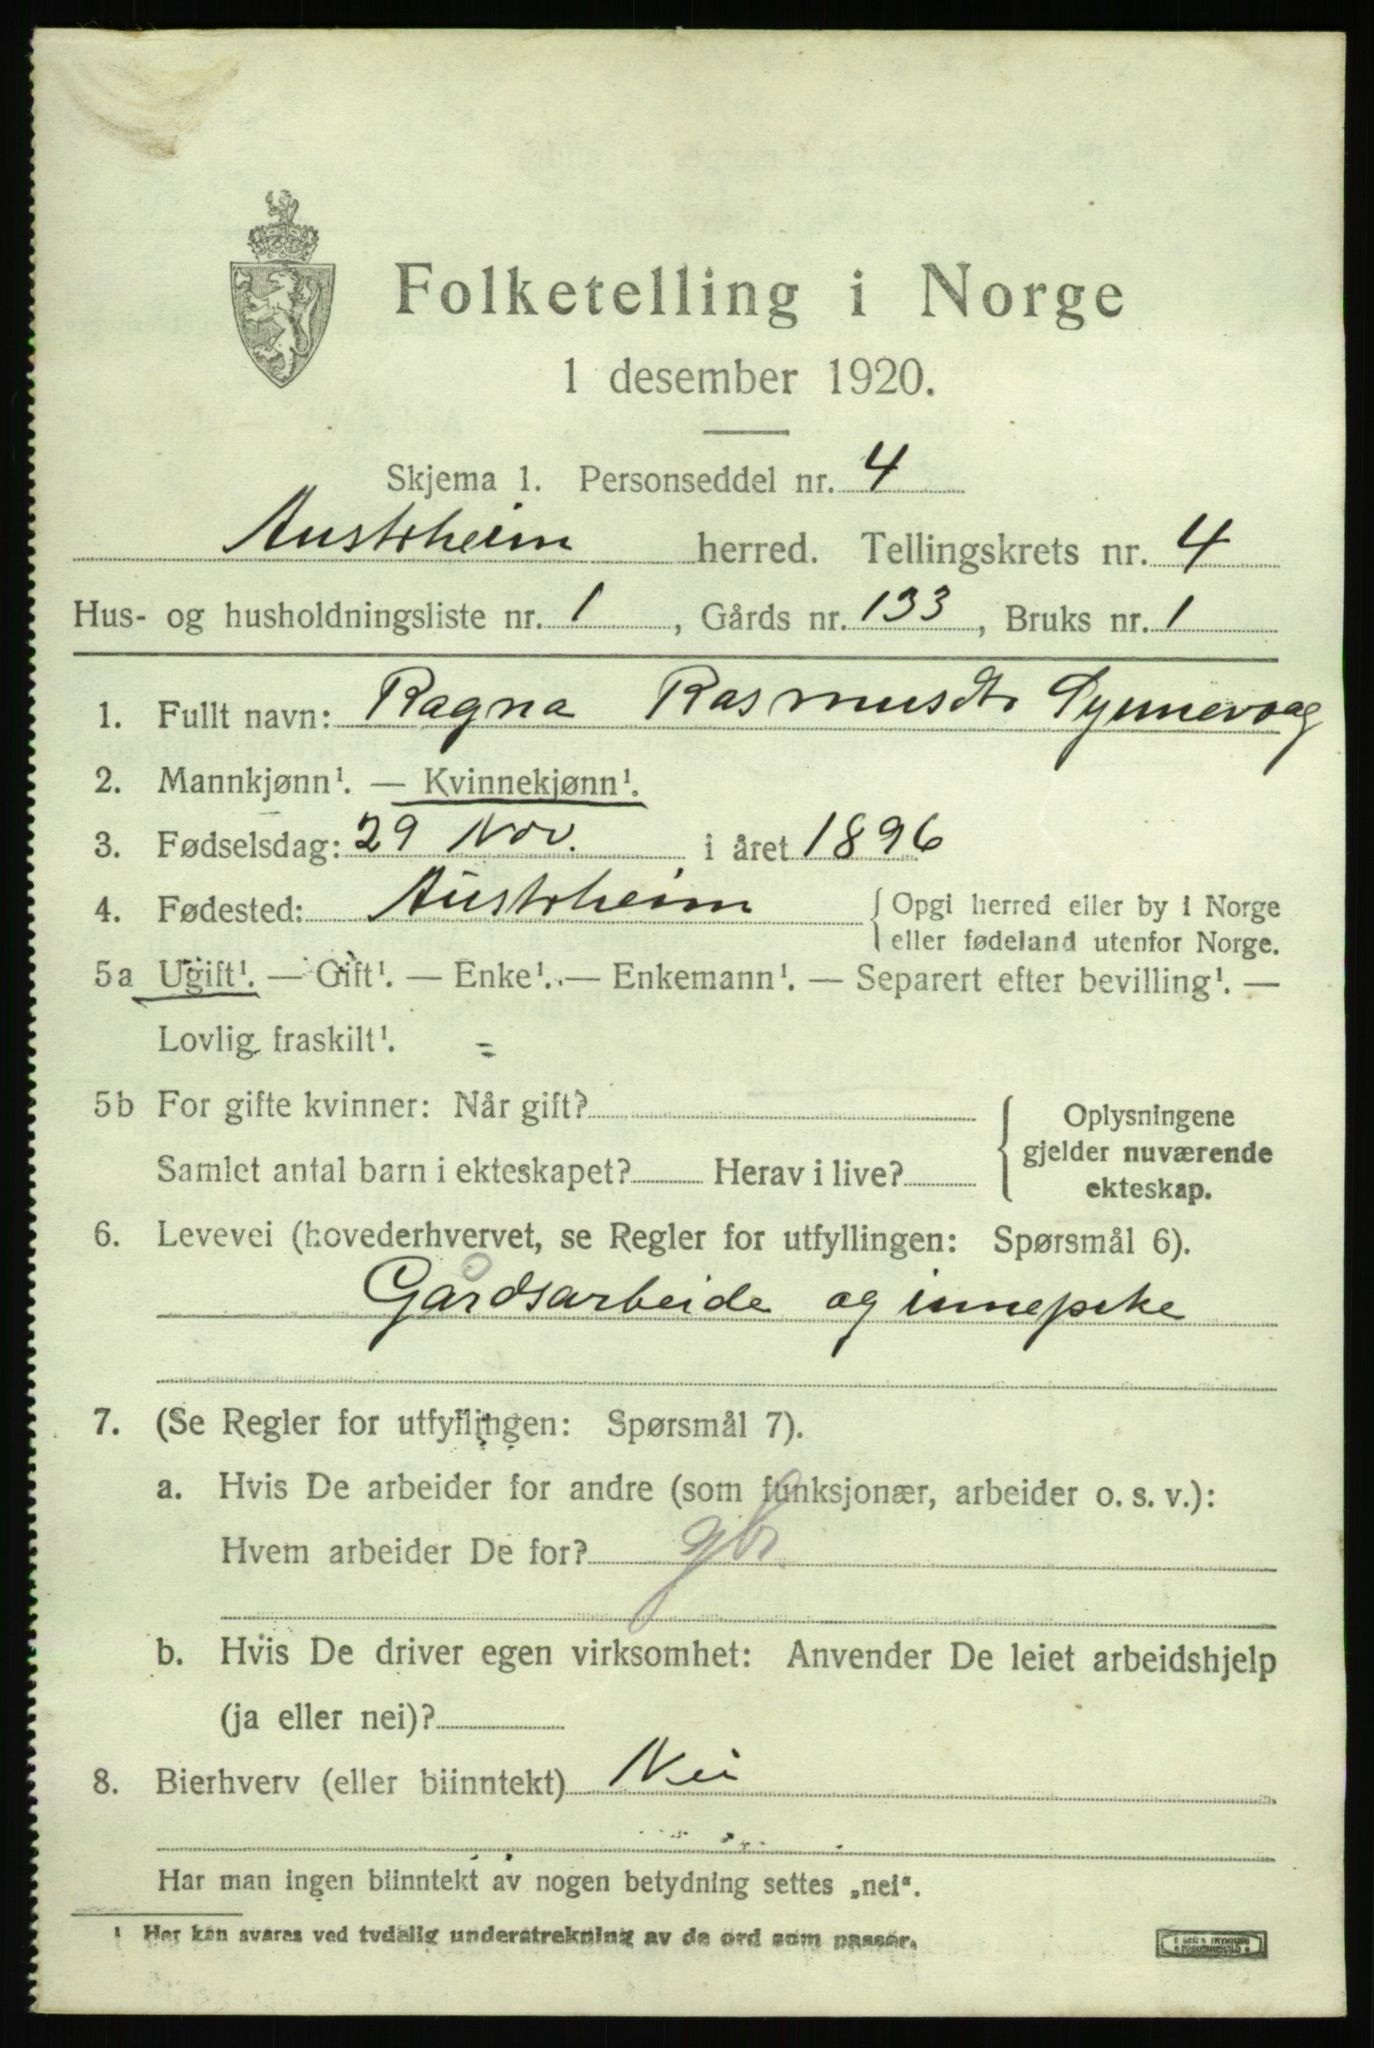 Folketelling i Norge
1 desember 1920.
Skjema 1. Personseddel nr. 4
Austrheim herred. Tellingskrets nr. 4
Hus- og husholdningsliste nr. 1, Gårds nr. 133, Bruks nr. 1
1. Fullt navn: Ragna Rasmusdtr Synnevaag
2. Mannkjønn¹. — Kvinnekjønn¹.
3. Fødselsdag: 29 Nov. i året 1896
4. Fødested: Austrheim { Opgi herred eller by i Norge
eller fødeland utenfor Norge.
5a Ugift¹. — Gift¹. — Enke¹. — Enkemann¹. — Separert efter bevilling¹. —
Lovlig fraskilt¹.
5b For gifte kvinner: Når gift?
Samlet antal barn i ekteskapet? Herav i live?
{ Oplysningene
gjelder nuværende
ekteskap.
6. Levevei (hovederhvervet, se Regler for utfyllingen: Spørsmål 6).
Gårdsarbeide og innepike
7. (Se Regler for utfyllingen: Spørsmål 7).
a. Hvis De arbeider for andre (som funksjonær, arbeider o. s. v.):
Hvem arbeider De for? gbr.
b. Hvis De driver egen virksomhet: Anvender De leiet arbeidshjelp
(ja eller nei)?
8. Bierhverv (eller biinntekt) Nei
Har man ingen biinntekt av nogen betydning settes „nei“.
¹ Her kan svares ved tydelig understrekning av de ord som passer.